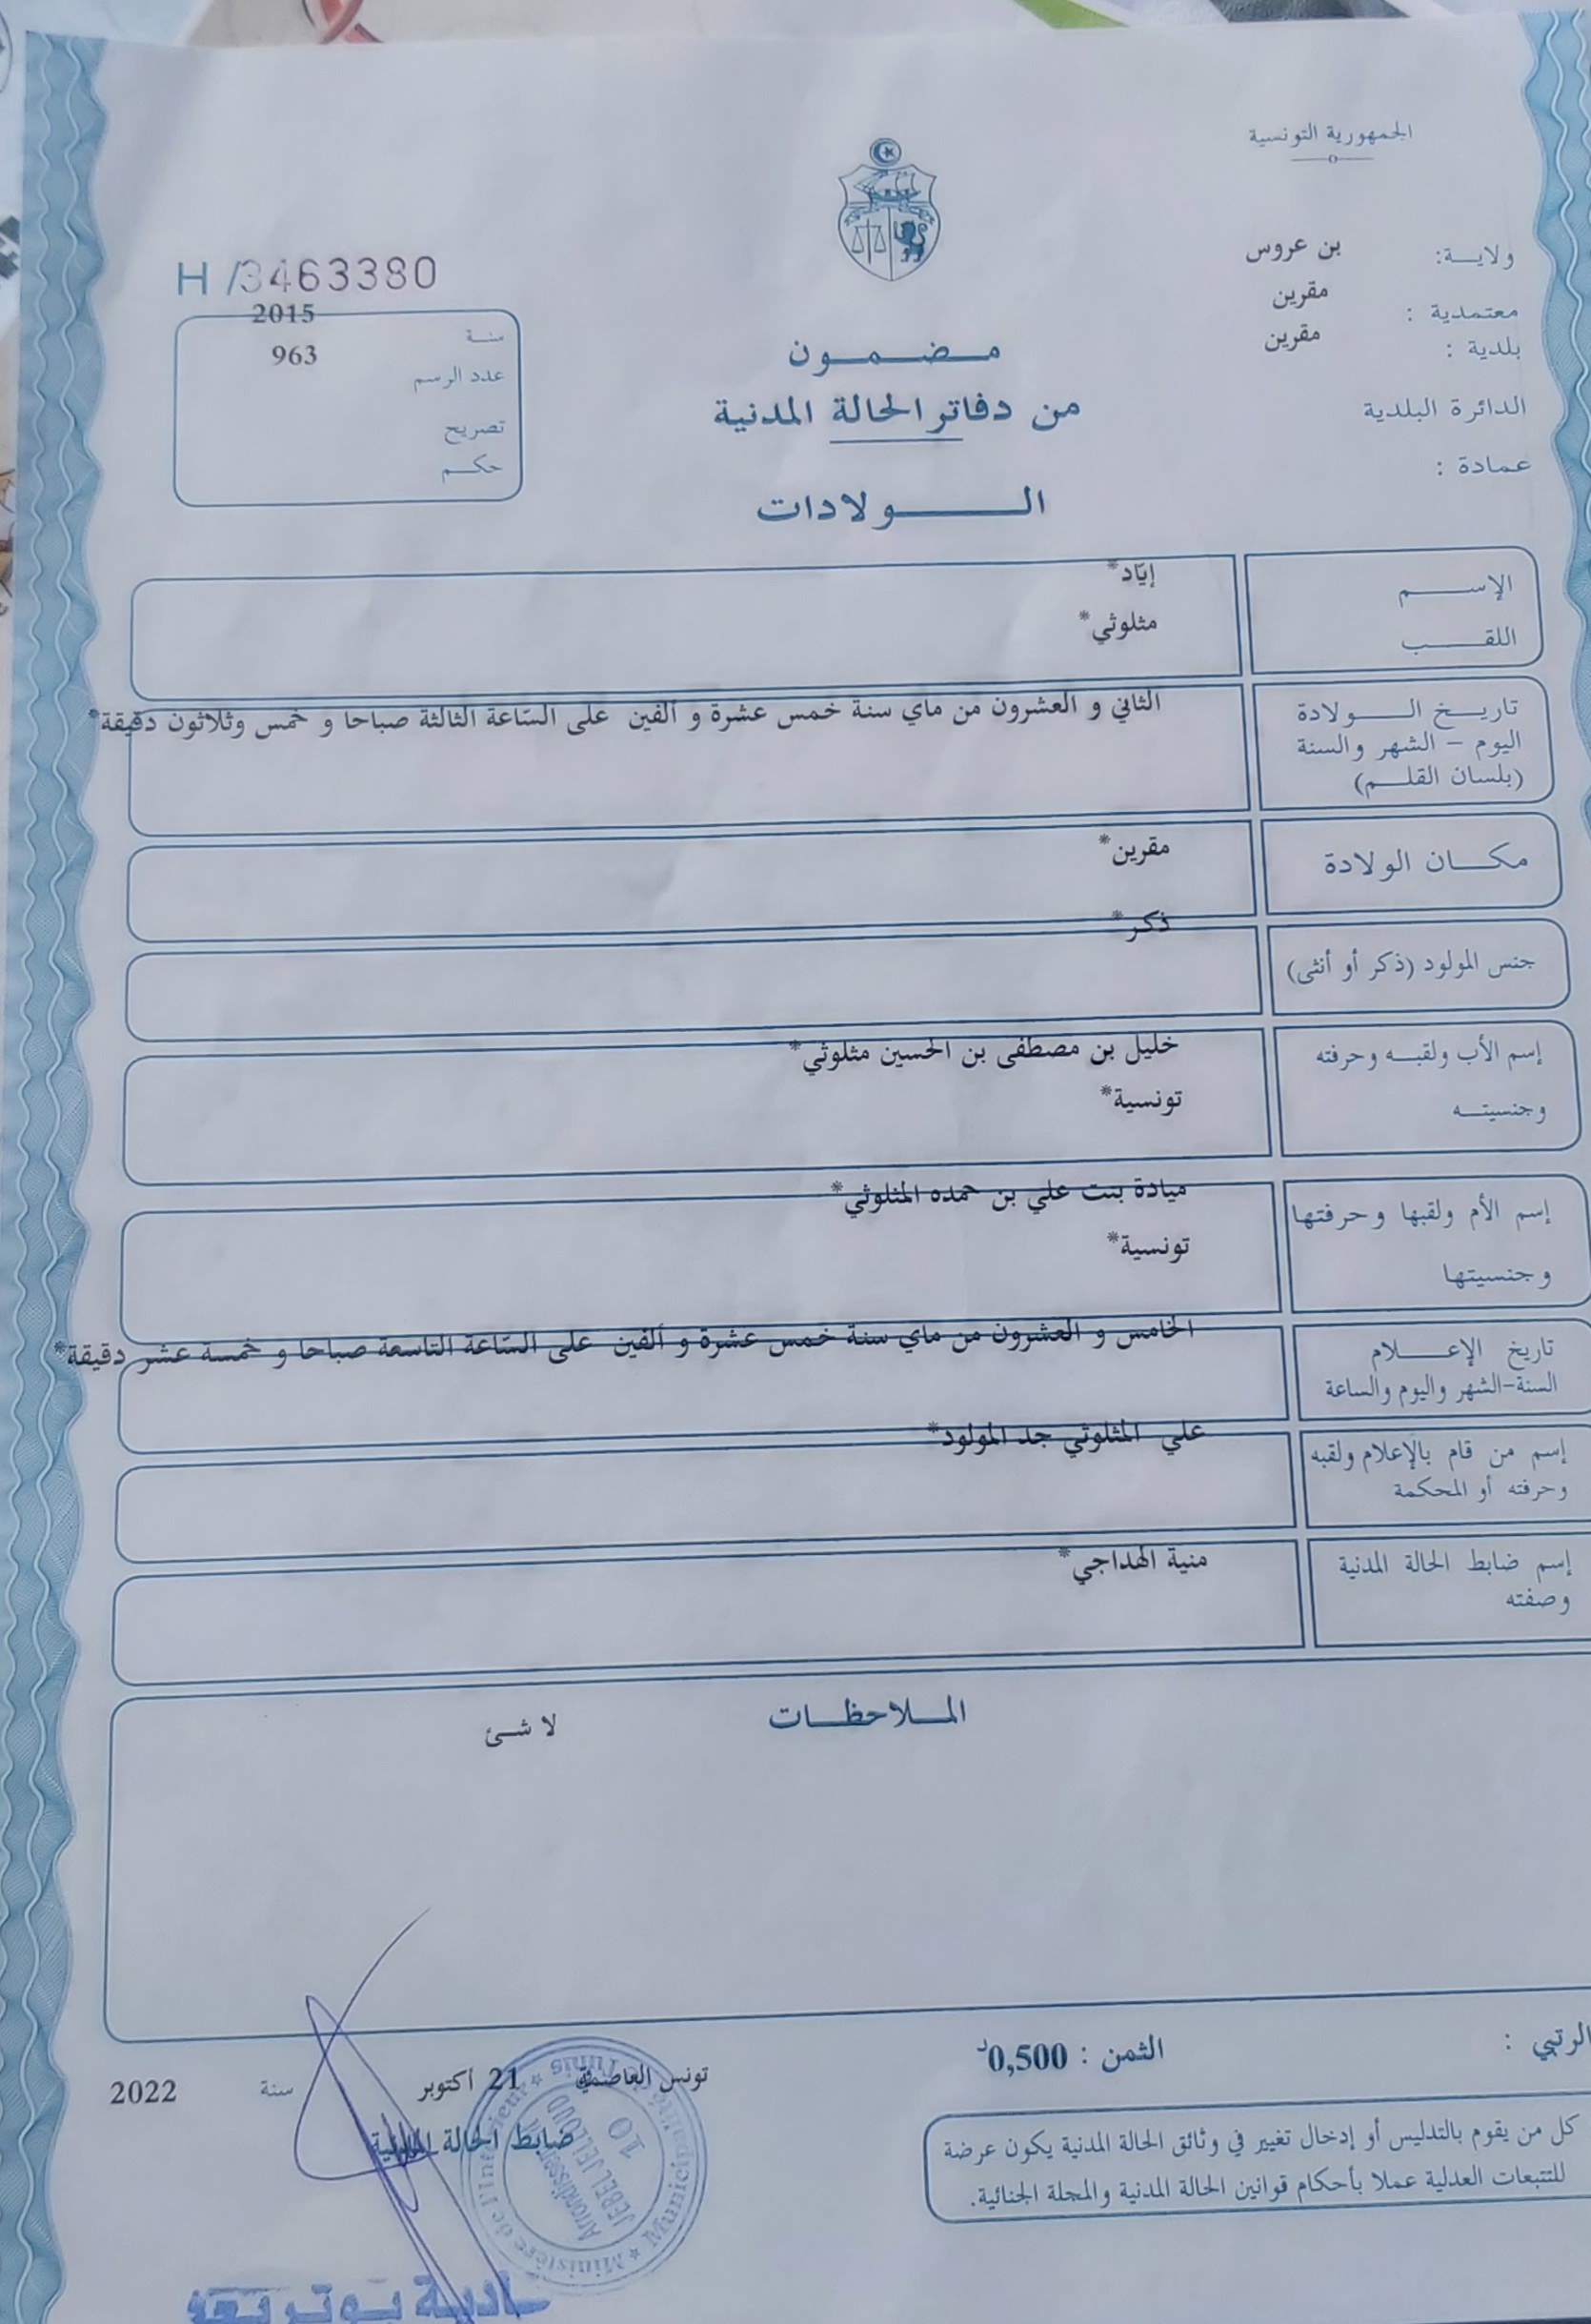 الجمهورية التونسية
ولاية: بن عروس
معتمدية : مقرين
بلدية : مقرين
الدائرة البلدية
عمادة :
H /3463380
سنة 2015
عدد الرسم 963
تصريح
حكم
مضمون
من دفاتر الحالة المدنية
الولادات
الإسم إيّاد*
اللقب مثلوثي*
تاريخ الولادة الثاني و العشرون من ماي سنة خمس عشرة و ألفين على السّاعة الثالثة صباحا و خمس وثلاثون دقيقة*
اليوم – الشهر والسنة
(بلسان القلم)
مكان الولادة مقرين*
جنس المولود (ذكر أو أنثى) ذكر*
إسم الأب ولقبه وحرفته خليل بن مصطفى بن الحسين مثلوثي*
وجنسيته تونسية*
إسم الأم ولقبها وحرفتها ميادة بنت علي بن حمده المثلوثي*
وجنسيتها تونسية*
تاريخ الإعلام الخامس و العشرون من ماي سنة خمس عشرة و ألفين على السّاعة التاسعة صباحا و خمسة عشر دقيقة*
السنة-الشهر واليوم والساعة
إسم من قام بالإعلام ولقبه علي المثلوثي جد المولود*
وحرفته أو المحكمة
إسم ضابط الحالة المدنية منية الهداجي*
وصفته
الملاحظات
لا شئ
الرتبي :
الثمن : 0,500د
تونس العاصمة 21 أكتوبر سنة 2022
ضابط الحالة المدنية
كل من يقوم بالتدليس أو إدخال تغيير في وثائق الحالة المدنية يكون عرضة
للتتبعات العدلية عملا بأحكام قوانين الحالة المدنية والمجلة الجنائية.
Ministère de l'Intérieur * Municipalité de Tunis *
Arrondissement
JEBEL JELLOUD
10